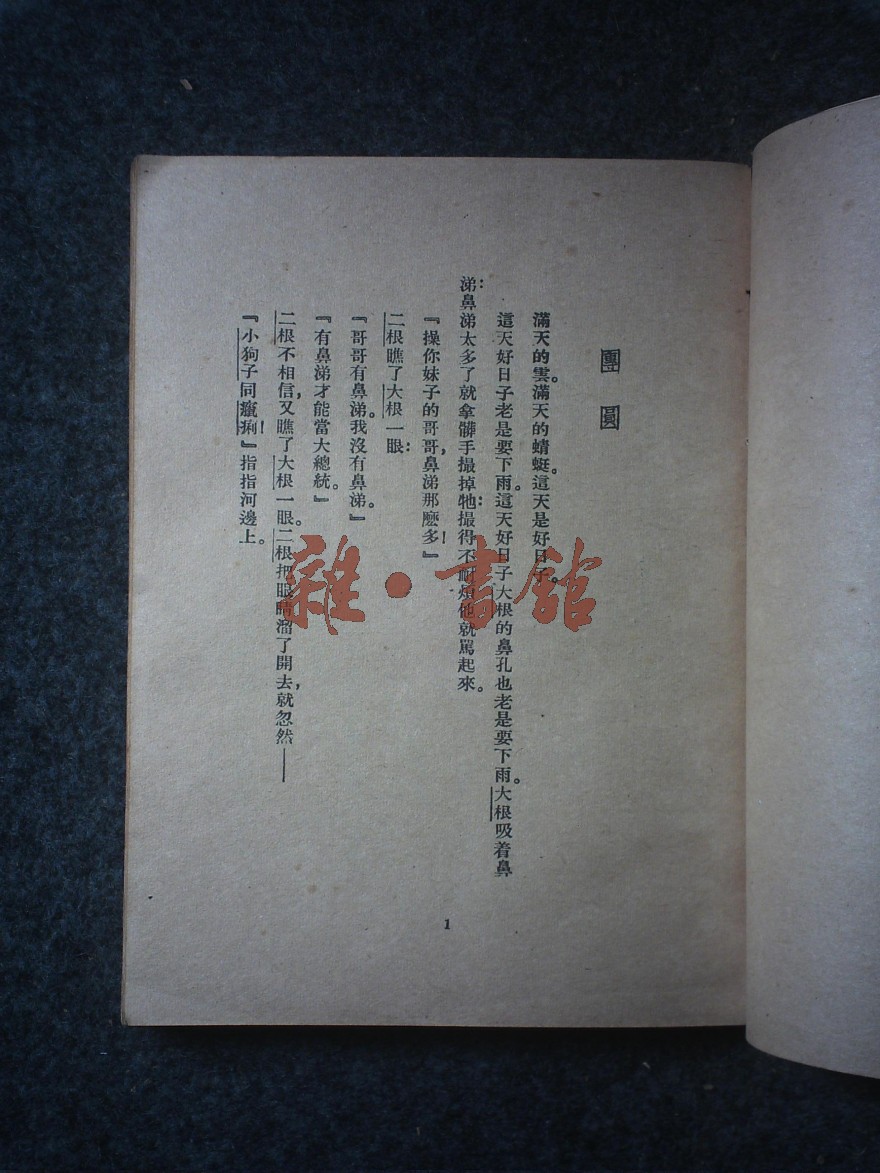 團圓
滿天的雲。滿天的蜻蜓。這天是好日子。
這天好日子老是要下雨。這天好日子大根的鼻孔也老是要下雨。大根吸着鼻
涕：鼻涕太多了就拿髒手撮掉牠：撮得不耐煩他就罵起來。
『操你妹子的哥哥，鼻涕那麼多！』
二根瞧了大根一眼：
『哥哥有鼻涕。我沒有鼻涕。』
『有鼻涕才能當大總統。』
二根不相信，又瞧了大根一眼。二根把眼睛溜了開去，就忽然——
『小狗子同癩痢！』指指河邊上。
1
雜·書館